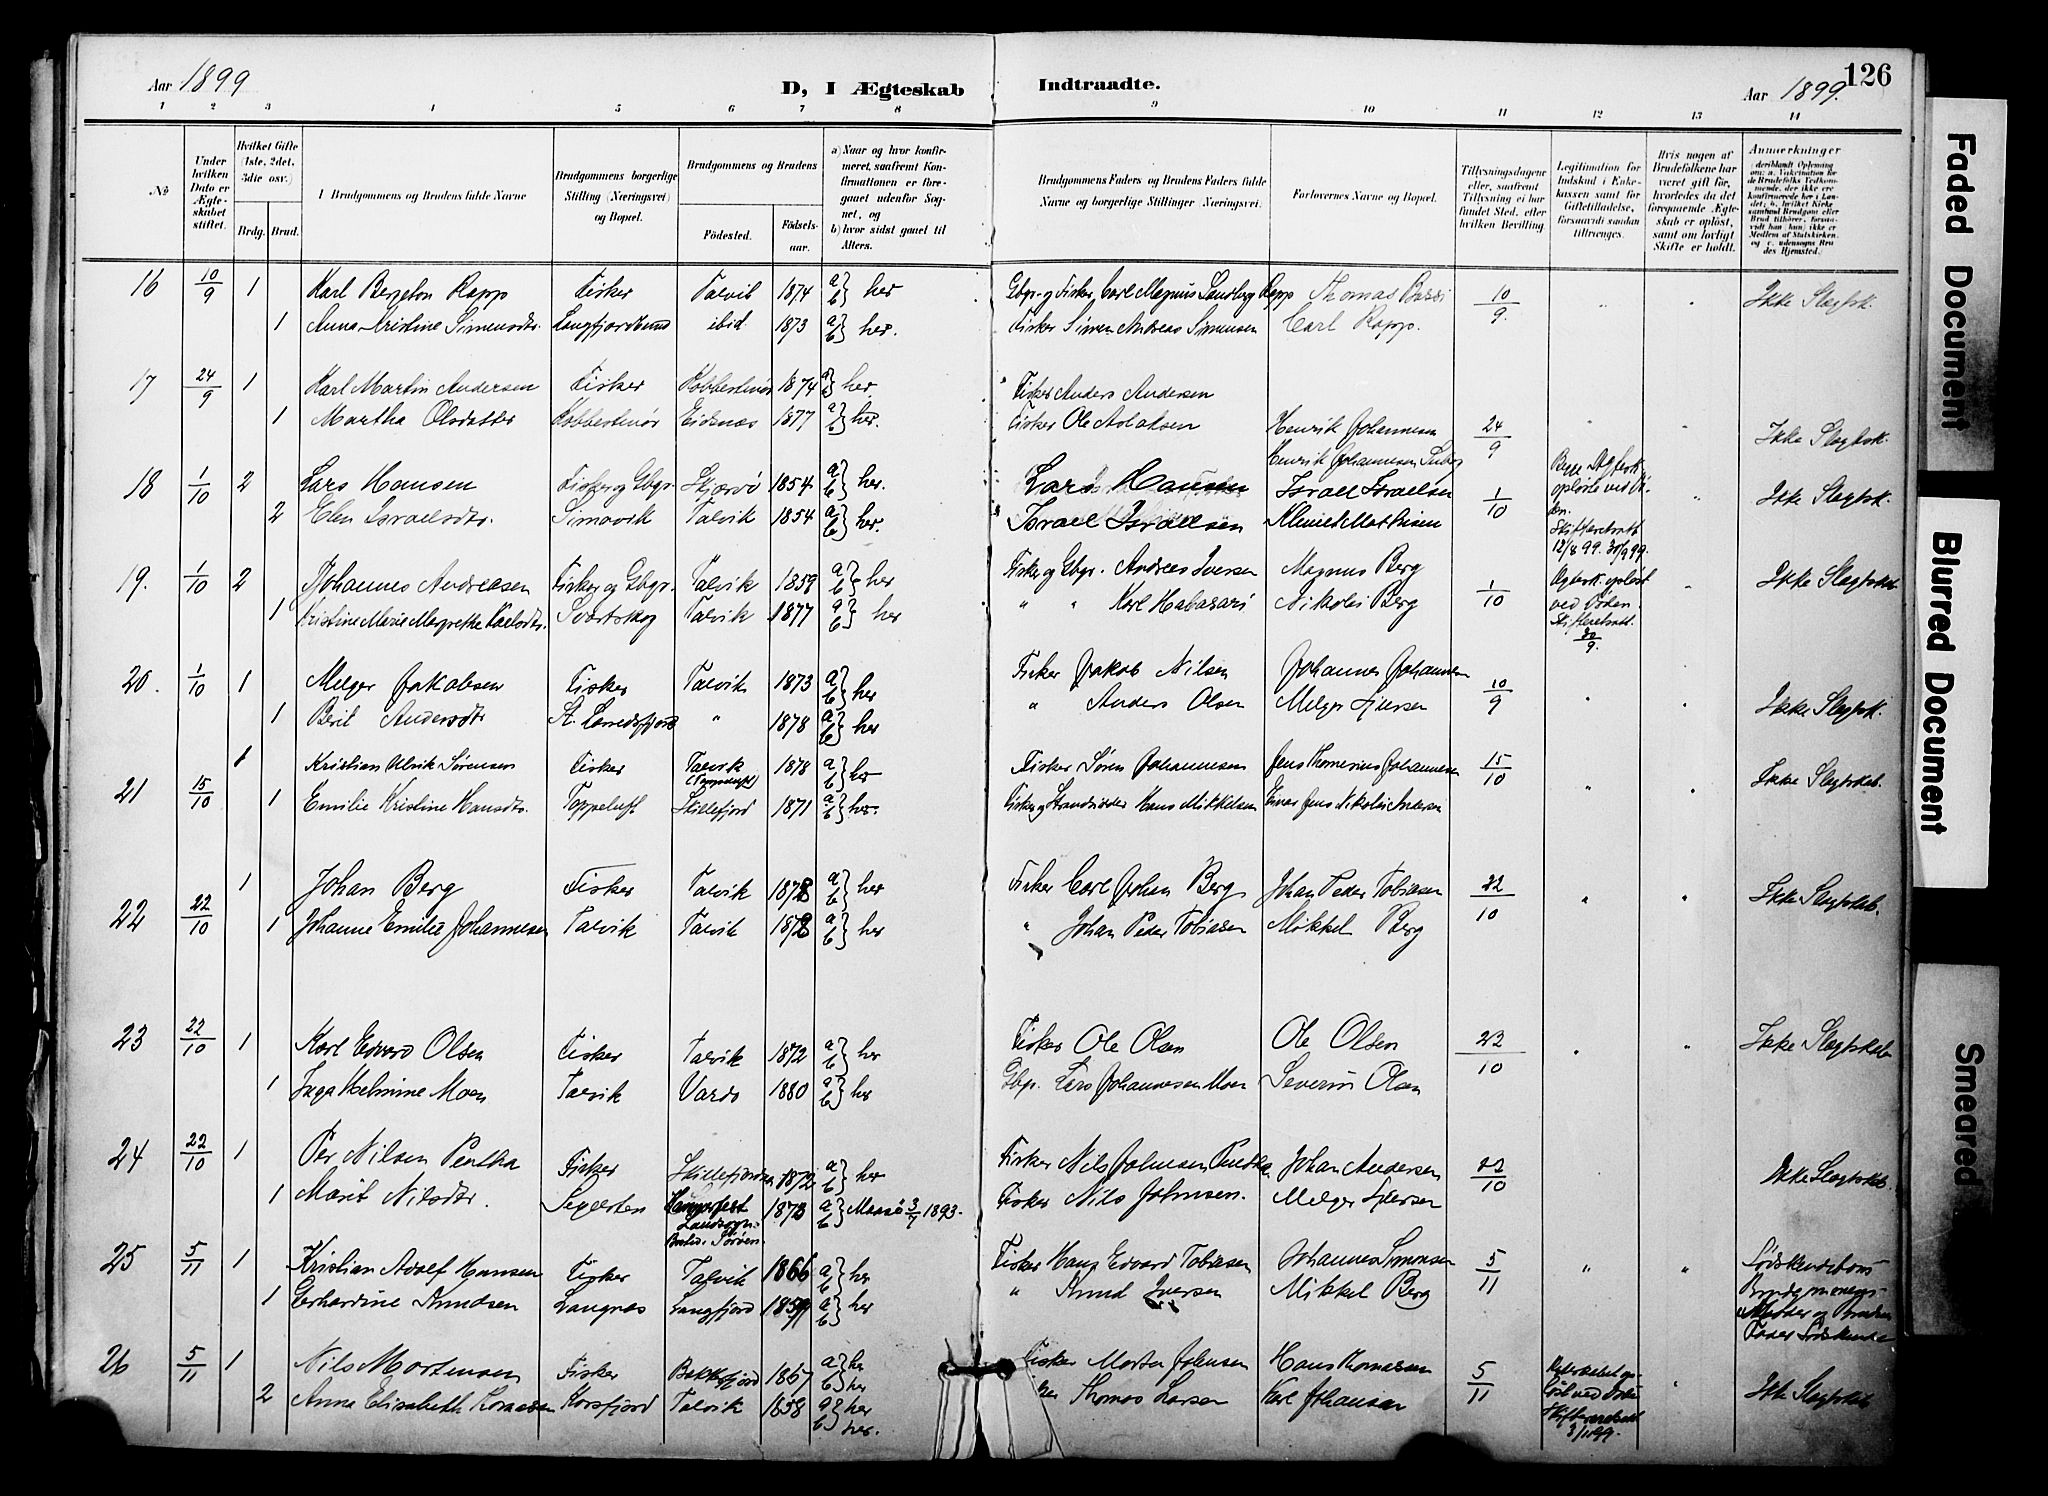 Aar 1899
D, I Ægteskab Indtraadte.
Aar 1899.
126
1 2 3 4 5 6 7 8 9 10 11 12 13 14
No
Under hvilken Dato er Ægteskabet stiftet.
Hvilket Gifte (1ste, 2det, 3die osv.)
Brdg. Brud.
Brudgommens og Brudens fulde Navne
Brudgommens borgerlige Stilling (Næringsvei) og Bopæl.
Brudgommens og Brudens
Fødested.
Fødselsaar.
a) Naar og hvor konfirmeret, saafremt Konfirmationen er foregaaet udenfor Sognet, og
b) hvor sidst gaaet til Alters.
Brudgommens Faders og Brudens Faders fulde Navne og borgerlige Stillinger (Næringsvei).
Forlovernes Navne og Bopæl.
Tillysningsdagene eller, saafremt Tillysning ei har fundet Sted, efter hvilken Bevilling.
Legitimation for Indskud i Enkekassen samt for Giftetilladelse, forsaavidt saadan tiltrænges.
Hvis nogen af Brudefolkene har været gift før, hvorledes da det foregaaende Ægteskab er opløst, samt om lovligt Skifte er holdt.
Anmærkninger
16 10/9 1 Karl Bergeton Rapp Fisker Talvik 1874 a) b) her Gbgr. og Fisker Carl Magnus Sandberg Rapp Thomas 10/9 Ikke Slægtsk.
1 Anna Kristine Simensdtr. Langfjordbund ibid 1873 a) b) her. Fisker Simen Andreas Simensen Carl Rapp.
17 24/9 1 Karl Martin Andersen Fisker Kobbestinør 1874 a) b) her. Fisker Anders Andersen
1 Martha Olsdatter Kobbestinør Eidsnæs 1877 a) b) her. Fisker Ole Aslaksen Henrik Johannesen 24/9 Ikke Slægtsk.
Henrik Johannesen
18 1/10 2 Lars Hansen Fisker og Gbgr. Skjærvø 1854 a) b) her. Lars Hansen Israel Israelsen 1/10 Ikke Slægtsk.
2 Elen Israelsdtr. Simavik Talvik 1854 a) b) her. Israel Israelsen
Skifteretsatt. 12/8 99. 30/9 99.
19. 1/10 2 Johannes Andreasen Fisker og Gbgr. Talvik 1859 a) b) her Fisker og Gbgr. Andreas Iversen Magnus Berg 1/10 Ægtesk. opløst ved Døden. Skifteretsatt. 30/9. Ikke Slægtskab
1 Kristine Marie Margrethe Karlsdtr. Svartskog Talvik 1877 a) b) her " " Karl Habasari Nikolai Berg
20. 1/10 1 Melger Jakobsen Fisker Talvik 1873 a) b) her Fisker Jakob Nilsen Johannes Johannesen 10/9 Ikke Slægtsk.
1 Berit Andersdtr St. Lerredsfjord " 1878 a) b) her " Anders Olsen Melger
21 15/10 1 Kristian Ulrik Sørensen Fisker Talvik 1878 a) b) her Fisker Søren Johannesen Jens Johannesen 15/10 Ikke Slægtskab.
1 Emilie Kristine Hansdtr. Toppeluft Skillefjord 1871 a) b) her. Fisker og Strandsidder Hans Mikkelsen Jens Nikolai
22 22/10 1 Johan Berg Fisker Talvik 1878 a) b) her Fisker Carl Johan Berg Johan Peder Tobiasen 22/10 Ikke Slægtskab.
1 Johanne Emilie Johannesen Talvik Talvik 1878 a) b) her " Johan Peder Tobiasen Mikkel Berg
23 22/10 1 Karl Edvard Olsen Fisker Talvik 1872 a) b) her Fisker Ole Olsen Ole Olsen 22/10 Ikke Slægtskab
1 Inga Helmine Moen Talvik Vardø 1880 a) b) her Gbgr. Lars Johannesen Moen Severin Olsen
24 22/10 1 Per Nilsen Pentha Fisker Skillefjorden 1872 a) b) her Fisker Nils Johnsen Pentha Johan Andersen 22/10 Ikke Slægtskab.
1 Marit Nilsdtr. Hammerfest Landsogn 1873 a) b) Maasø 3/7 1893. Fisker Nils Johnsen. Melger
25 5/11 1 Kristian Adolf Hansen Fisker Talvik 1866 a) b) her Fisker Hans Edvard Tobiasen Johannes Simonsen 5/11 " " Sødskendebørn Brudgommens Moder og Brudens Fader Sødskende
1 Gerhardine Knudsen Langnæs Langfjord 1859 a) b) her " Knud Iversen Mikkel Berg
26 5/11 1 Nils Mortensen Fisker Bekkefjord 1867 a) her b) her Fisker Morten Johnsen Hans Thomasen 5/11 Ægteskabet opløst ved Døden Skifteretsatt. Ikke Slægtskab
2 Anna Elisabeth Korsfjord Talvik 1858 a) her b) her. Thomas Larsen Karl Johansen
Faded Document
Blurred Document
Smeared